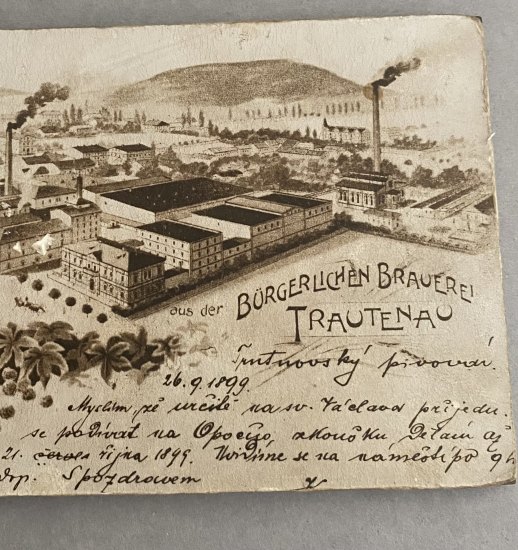 aus der BÜRGERLICHEN BRAUEREI
TRAUTENAU
Trutnovský pivovár.
26.9.1899.
Myslím, že určitě na sv. Václava přijedu
se podívat na Opočno, zkoušku dělám až
21. června října 1899. Uvidíme se na náměstí po 9 h
odp. S pozdravem